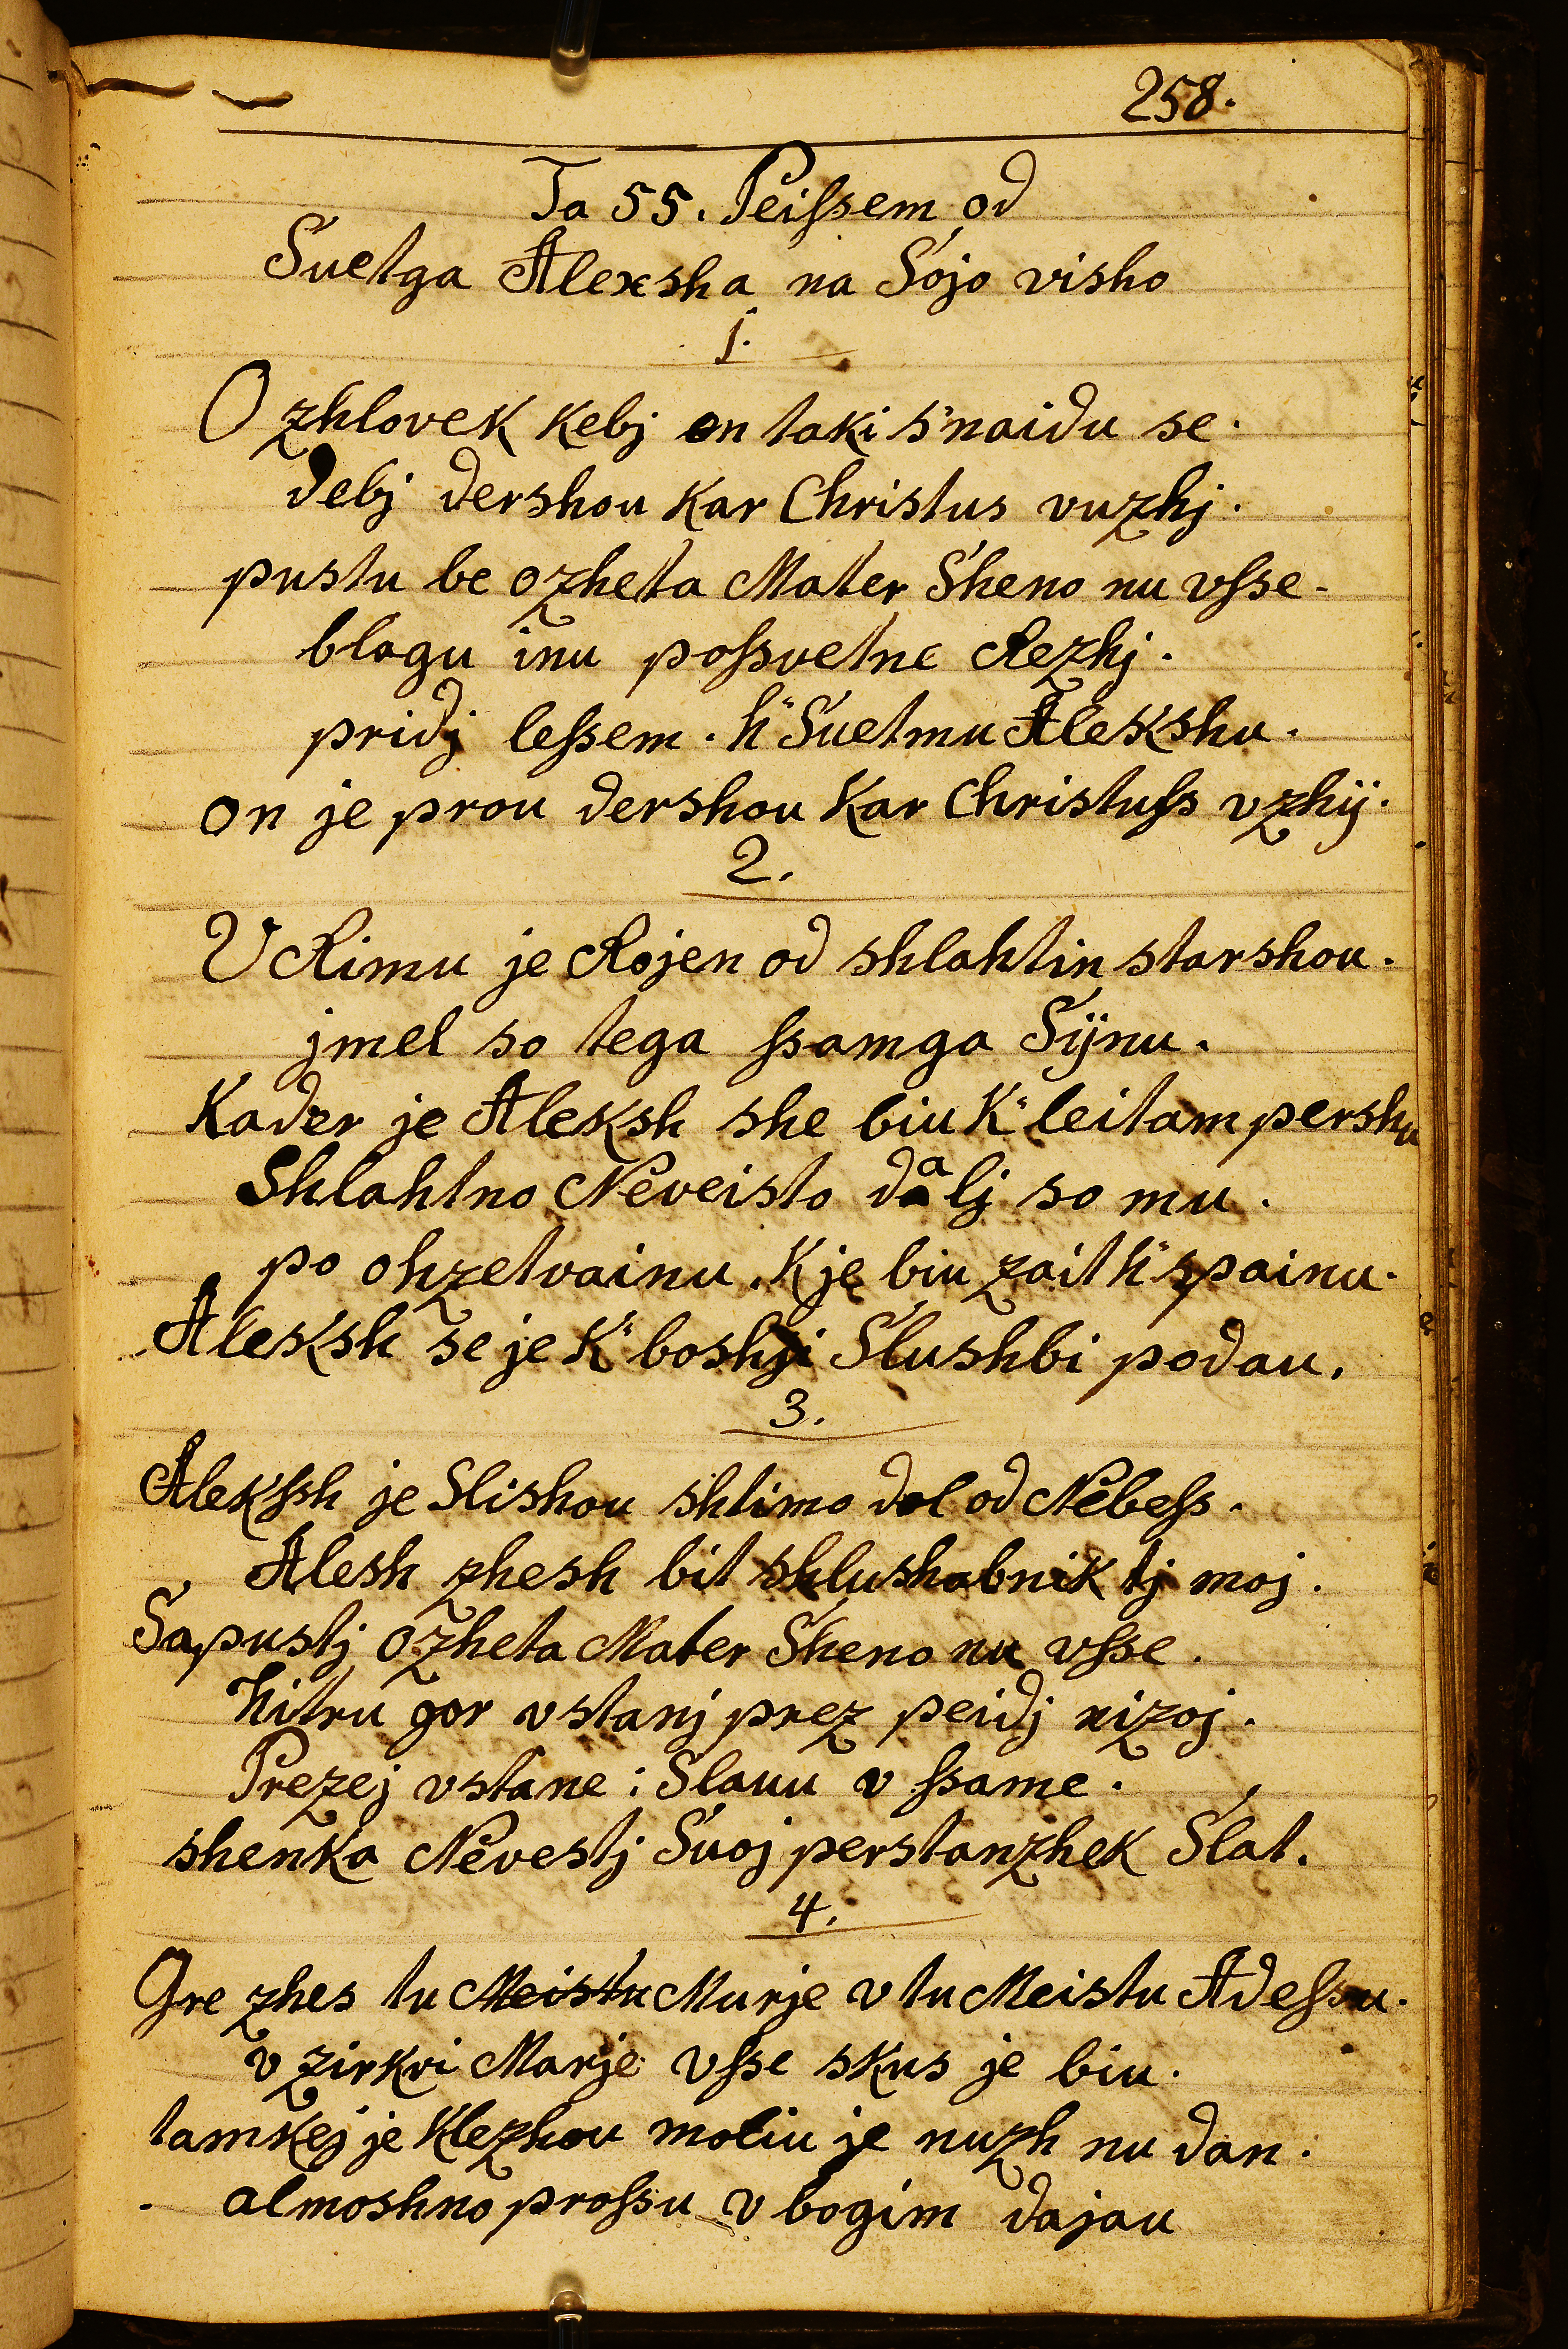 258.
Ta 55. Peiſsem od
Suetga Alexsha na Sojo visho
1.
O zhlovek kebj on taki s'naidu se.
debj dershou kar Christus vuzhj.
pustu be ozheta Mater Sheno nu vſse.
blagu inu poſsvetne Rezhj.
pridj leſsem. h' Suetmu Alekshu.
on je prou dershou kar Christuſs vzhÿ.
2.
V Rimu je Rojen od shlahtin starshou.
jmel so tega ſsamga Sÿnu.
Kader je Aleksh she biu K' leitam pershu
Shlahtno Neveisto dalj so mu.
po ohzetvainu. K je biu zait h' spainu.
Aleksh se je K' boshji Slushbi podau.
3.
Alekſsh je Slishou shtimo dol od Nebeſs.
Alesh zhesh bit shlushabnik tj moj.
Sapustj ozheta Mater Sheno nu vſse.
hitru gor vstanj prez peidj nizoj.
Prezej vstane: Slauu v ſsame.
shenka Nevestj Suoj perstanzhek Slat.
4.
Gre zhes tu Meistu Murje v tu Meistu Adeſsu.
v zirkvi Marje vſse skus je biu.
tamkej je Klezhou moliu je nuzh nu dan.
almoshno proſsu v bogim dajau